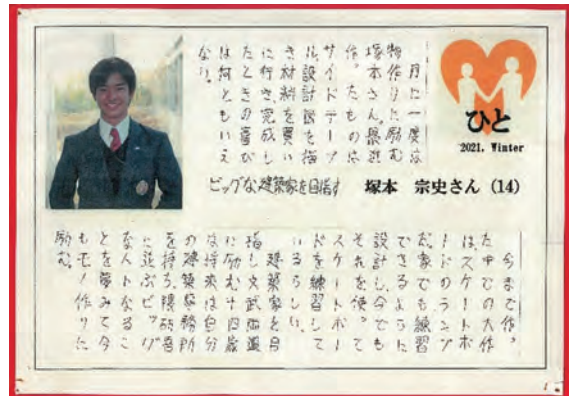 ひと
2021. Winter
月に一度は
物作りに励む
塚本さん。最近
作ったものは
サイドテーブ
ル。設計図を描
き材料を買い
に行き、完成し
たときの喜び
は何ともいえ
ない。
ビッグな建築家を目指す 塚本 宗史さん (14)
今まで作っ
た中での大作
は、スケートボ
ードのランプ
だ。家でも練習
できるように
設計し、今でも
それを使って
スケートボー
ドを練習して
いるらしい。
建築家を目
指し文武両道
に励む十四歳
は将来は自分
の建築事務所
を持ち、隈研吾
に並ぶビッグ
な人となるこ
とを夢みて今
もモノ作りに
励む。